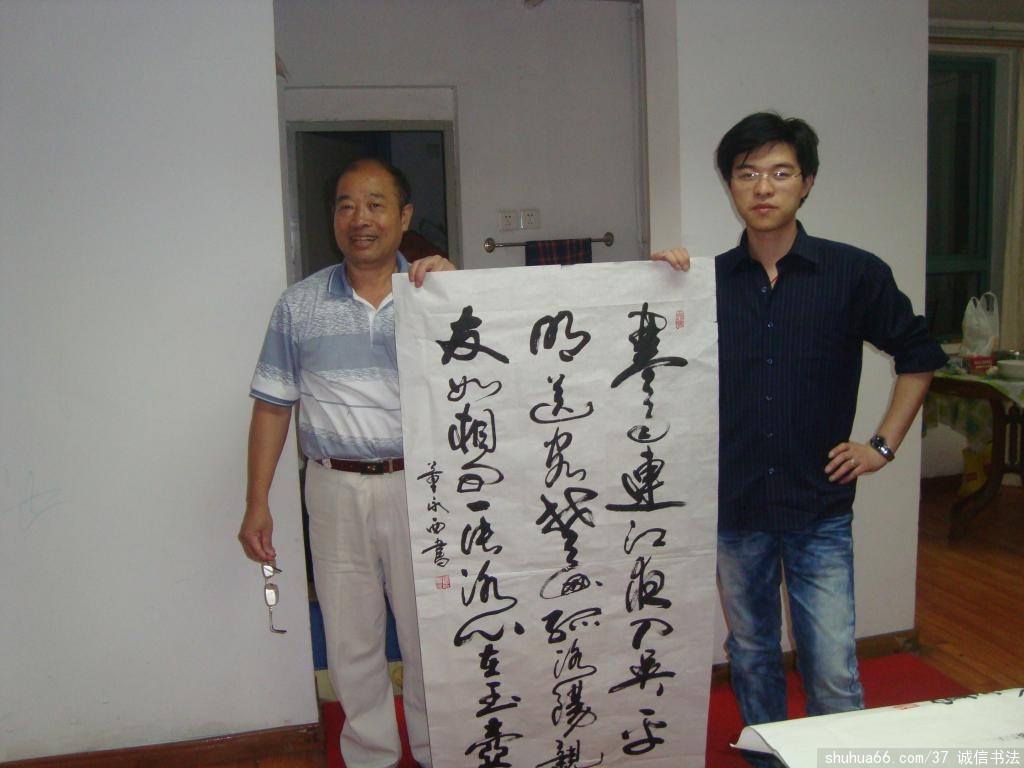 寒雨連江夜入吴平
明送客楚山孤洛陽親
友如相问一片冰心在玉壺
董永西書
shuhua66.com/37 诚信书法